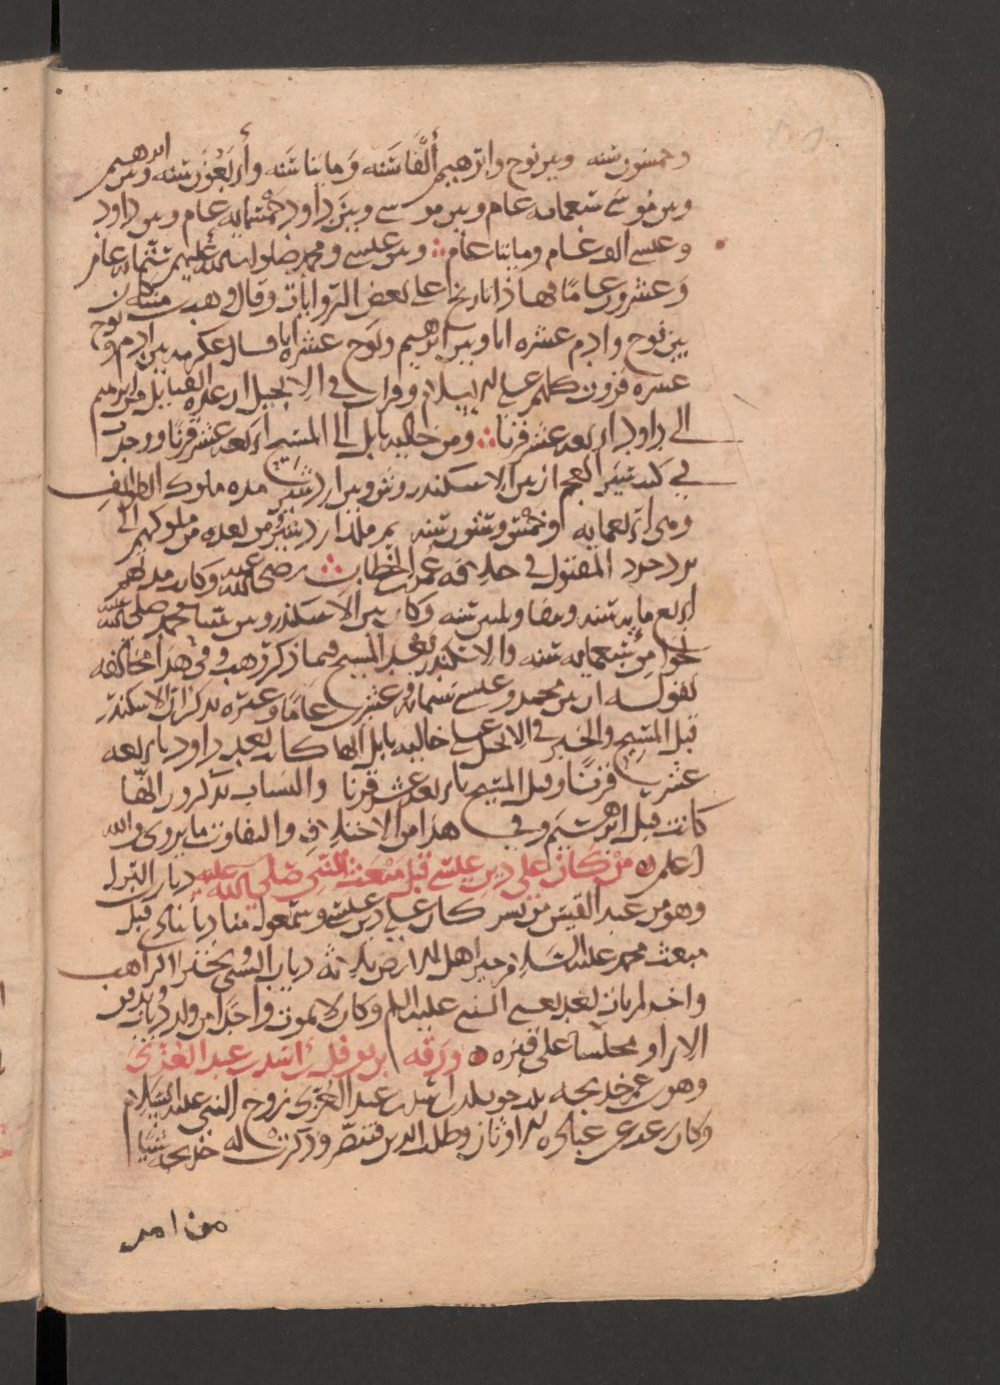 وخمسون سنه وبين نوح وابرهيم ألفا سنه وماىتا سنه وأربعون سنه وبين ابرهيم
وبين موسى سبعمايه عام وبين موسى وبين داود خمسمايه عام وبين داود
وعيسى الف عام وماىتا عام وبين عيسى ومحمد صلوات الله عليهم ستمايه عام
وعشرون عاما فهاذا تاريخ على بعض الروايات وقال وهب كان
بين نوح وادم عشره ابا وبين ابرهيم ونوح عشره ابا قال عكرمه بين ادم ونوح
عشره قرون كلهم على الاسلام وقرات في الانجيل ان عده القبايل من ابرهيم
الى داود اربعه عشر قرنا ومن جاليه بابل الى المسيح اربعه عشر قرنا ووجدت
في كتب سير العجم ان بين الاسكندروس وبين اردشير مده ملوك الطوايف
وهي اربعمايه وخمس وستون سنه ثم ملك اردشير ومن بعده من ملوكهم الى
يزدجرد المقتول في خلافه عمر بن الخطاب رضي الله عنه وكان مدتهم
اربع مايه سنه ونيفا وثلثين سنه وكان بين الاسكندر وبين نبينا محمد صلى الله عليه
نحوا من تسعمايه سنه والاسكندر بعد المسيح فيما ذكر وهب وفي هذا مخالفه
لقوله ان بين محمد وعيسى ستمايه وعشرين عاما وغيره يذكر ان الاسكندر
قبل المسيح والخبر في الانجيل على جاليه بابل انها كان بعد داود باربعه
عشر قرنا وقبل المسيح باربعه عشر قرنا والنساب تذكرون انها
كانت قبل ابرهيم وفي هذا من الاختلاف والتفاوت ما يروى والله
اعلم من كان على دين عيسى قبل مبعث النبي صلى الله عليه رياب بن البرا
وهو من عبد القيس من شن كان على دين عيسى وسمعوا مناديا ينادي قبل
مبعث محمد عليه السلام خير اهل الارض ثلاثه رياب الشني بحيرا الراهب
واخر لم يات بعد يعنى النبي عليه السلم وكان لا يموت واحد من ولد رياب فيدفن
الا راو مجلسا على قبره ورقه بن نوفل بن اسد بن عبد العزى
وهو بن عم خديجه بنت خويلد بن اسد بن عبد العزى زوج النبي عليه السلام
وكان رغب عن عباده الاوثان وطلب الدين فتنصر وذكرت له خديجه شيئا
من امر